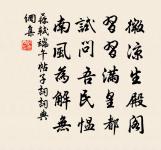 微涼生殿閣
習習滿皇都
試問吾民慍
南風為解無
蘇軾端午帖子詞詞典
網集